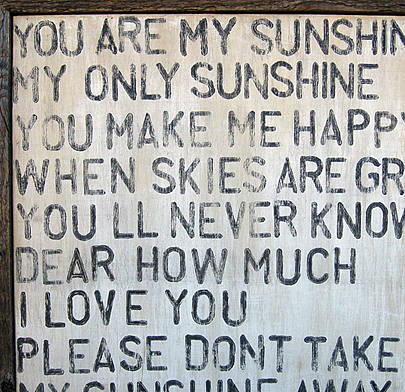 YOU ARE MY SUNSHIN
MY ONLY SUNSHINE
YOU MAKE ME HAPPY
WHEN SKIES ARE GR
YOU LL NEVER KNOW
DEAR HOW MUCH
I LOVE YOU
PLEASE DONT TAKE
MY SUNSHINE AWAY